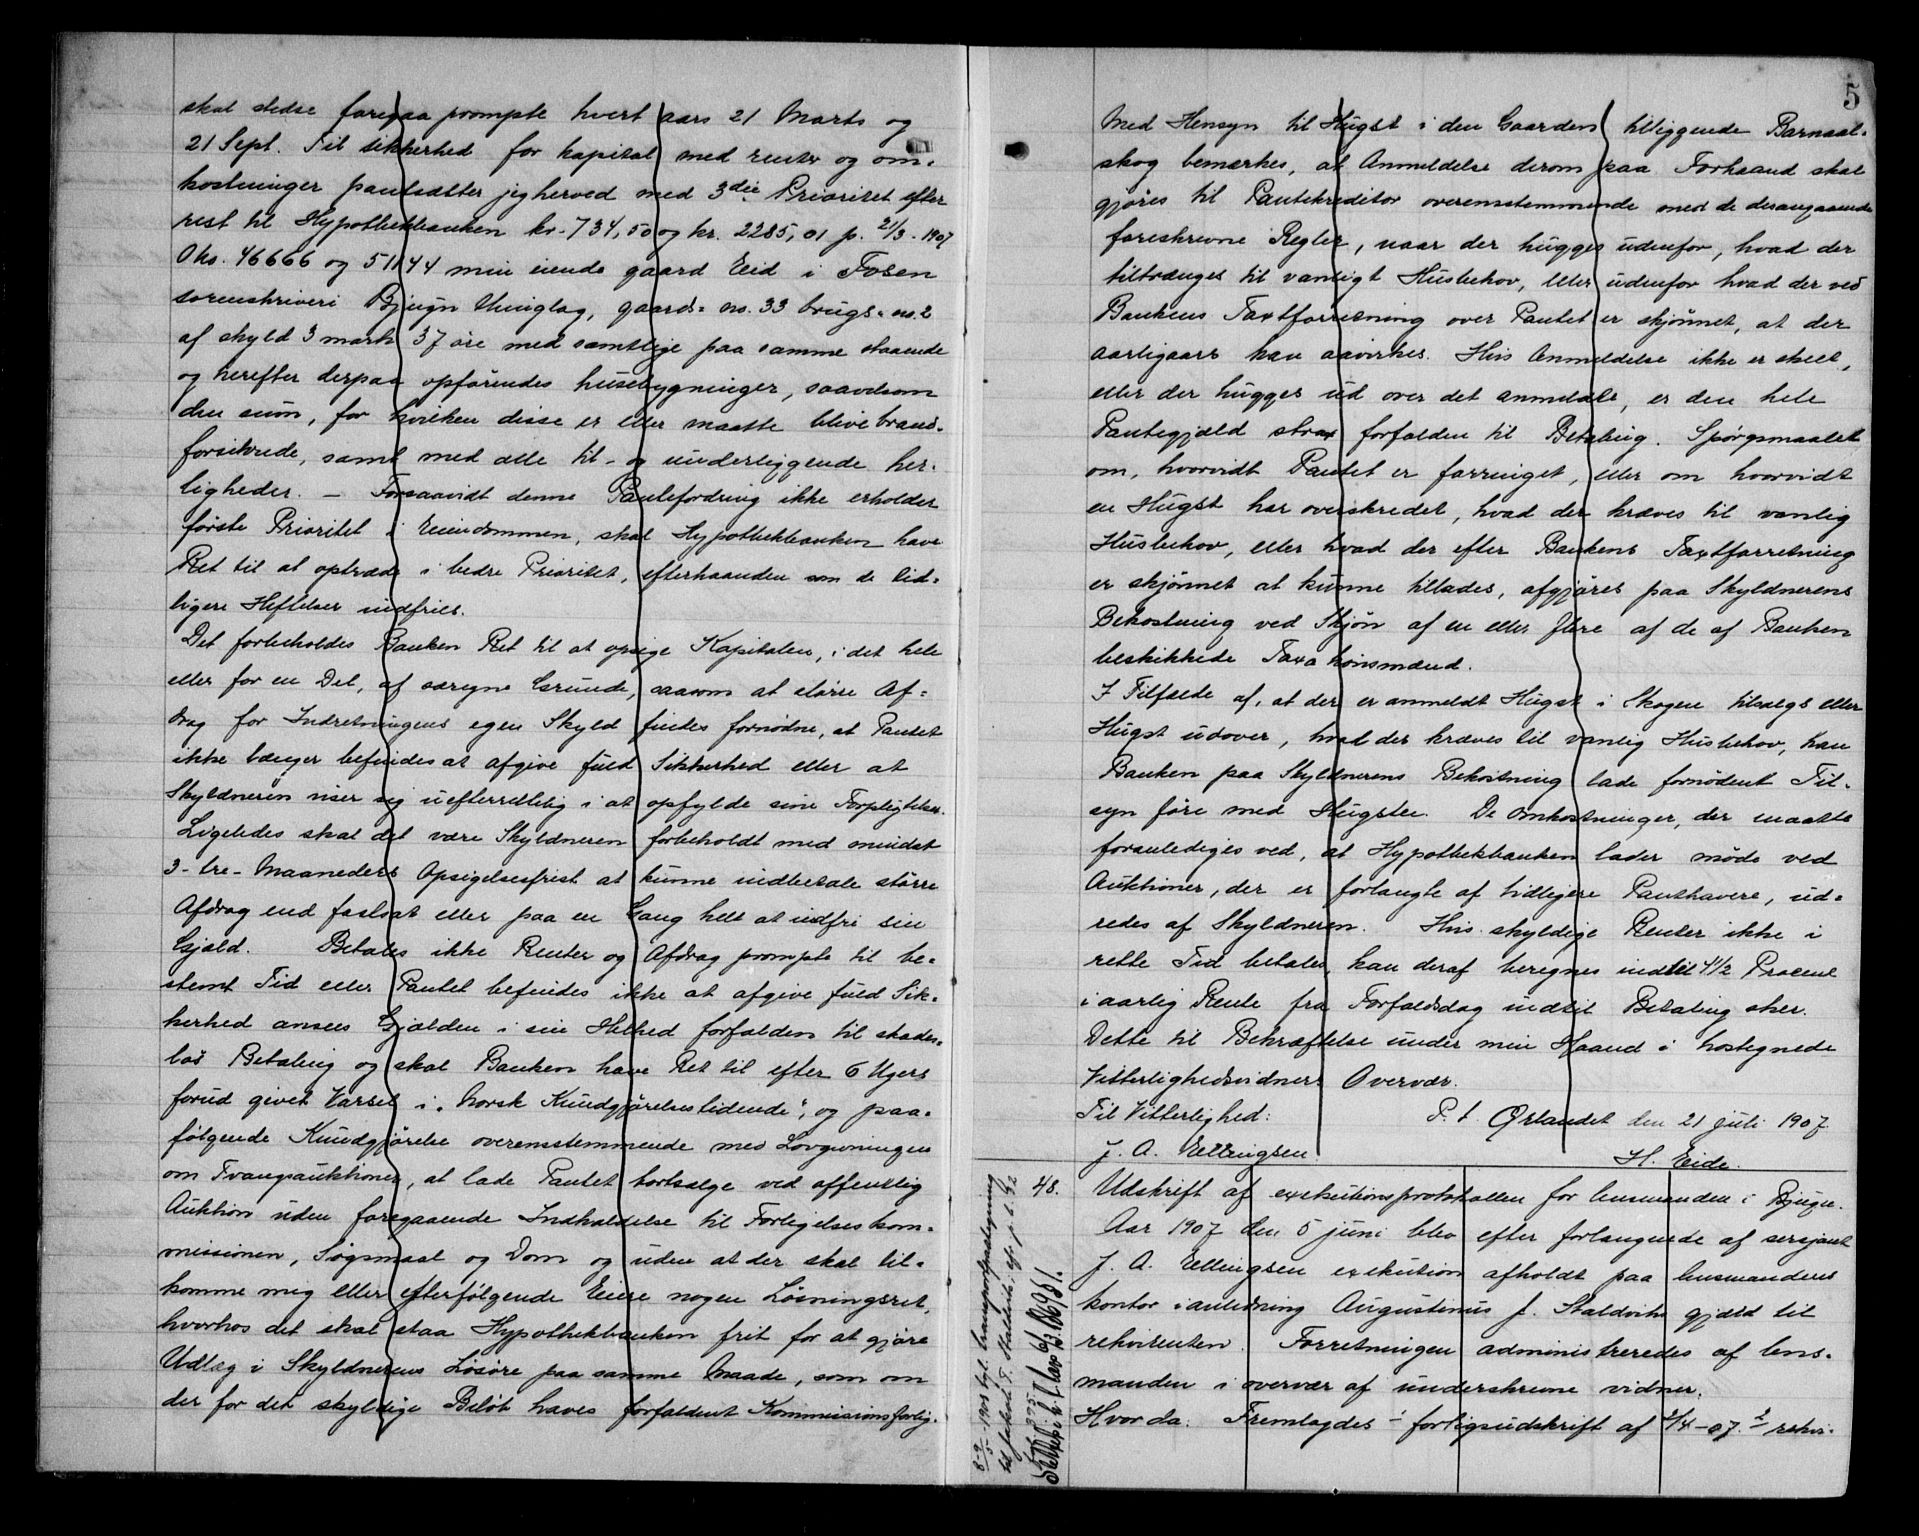 skal stedse foregaa prompte hvert aars 21 Marts og
21 Sept. Til sikkerhed for kapital med renter og om-
kostninger pantsætter jeg herved med 3die Prioritet efter
rest til Hypothekbanken kr. 734,50 og kr. 2285,01 p. 21/3-1907
Obs. 46666 og 51144 min eiende gaard Eid i Fosen
sorenskriveri Bjugn thinglag, gaards- no. 33 brugs- no. 2
af skyld 3 mark 37 øre med samtlige paa samme staaende
og herefter derpaa opførendes husebygninger, saavelsom
den sum, for hvilken disse er eller maatte blive brand-
forsikrede, samt med alle til- og underliggende her-
ligheder. — Forsaavidt denne Pantefordring ikke erholder
første Prioritet i Eiendommen, skal Hypothekbanken have
Ret til at optræde i bedre Prioritet, efterhaanden som de tid-
ligere Heftelser indfries.
Det forbeholdes Banken Ret til at opsige Kapitalen, i det hele
eller for en Del, af særegne Grunde, saasom at større Af-
drag for Indretningens egen Skyld findes fornødne, at Pantet
ikke længer befindes at afgive fuld Sikkerhed eller at
Skyldneren viser sig uefterrettelig i at opfylde sine Forpligtelser.
Ligeledes skal det være Skyldneren forbeholdt med mindst
3 - tre - Maaneders Opsigelsesfrist at kunne indbetale større
Afdrag end fastsat eller paa en Gang helt at indfri sin
Gjæld. Betales ikke Renter og Afdrag prompte til be-
stemt Tid eller Pantet befindes ikke at afgive fuld Sik-
kerhed ansees Gjælden i sin Helhed forfalden til skades-
løs Betaling og skal Banken have Ret til efter 6 Ugers
forud givet Varsel i "Norsk Kundgjørelsestidende", og paa-
følgende Kundgjørelse overensstemmende med Lovgivningen
om Tvangsauktioner, at lade Pantet bortsælge ved offentlig
Auktion uden foregaaende Indkaldelse til Forligelseskom-
missionen, Søgsmaal og Dom og uden at der skal til-
komme mig eller efterfølgende Eiere nogen Løsningsret,
hvorhos det skal staa Hypothekbanken frit for at gjøre
Udlæg i Skyldnerens Løsøre paa samme Maade, som om
der for det skyldige Beløb haves forfaldent Kommissionsforlig.
5
Med Hensyn til Hugst i den Gaarden tilliggende Barnaal-
skog bemærkes, at Anmeldelse derom paa Forhaand skal
gjøres til Pantekreditor overensstemmende med de desangaaende
foreskrevne Regler, naar der hugges udenfor, hvad der
tiltrænges til vanligt Husbehov, eller udenfor hvad der ved
Bankens Taxtforretning over Pantet er skjønnet, at der
aarligaars kan aavirkes. Hvis Anmeldelse ikke er skeet,
eller der hugges ud over det anmeldte, er den hele
Pantegjæld strax forfalden til Betaling. Spørgsmaalet
om, hvorvidt Pantet er forringet, eller om hvorvidt
en Hugst har overskredet, hvad der kræves til vanlig
Husbehov, eller hvad der efter Bankens Taxtforretning
er skjønnet at kunne tillades, afgjøres paa Skyldnerens
Bekostning ved Skjøn af en eller flere af de af Banken
beskikkede Taxationsmænd.
I Tilfælde af, at der er anmeldt Hugst i Skogen tilsalgs eller
Hugst udover, hvad der kræves til vanlig Husbehov, kan
Banken paa Skyldnerens Bekostning lade fornødent Til-
syn føre med Hugsten. De Omkostninger, der maatte
foranlediges ved, at Hypothekbanken lader møde ved
Auktioner, der er forlangte af tidligere Panthavere, ud-
redes af Skyldneren. Hvis skyldige Renter ikke i
rette Tid betales, kan deraf beregnes indtil 4 1/2 Procent
i aarlig Rente fra Forfaldsdag indtil Betaling sker.
Dette til Bekræftelse under min Haand i hostegnede
Vitterlighedsvidners Overvær.
Til Vitterlighed: P. t. Ørlandet den 21 juli 1907.
J. A. Ellingsen. H. Eide.
48. Udskrift af exekutionsprotokollen for lensmanden i Bjugn.
Aar 1907 den 5 juni blev efter forlangende af sersjant
J. A. Ellingsen exekution afholdt paa lensmandens
kontor i anledning Augustinus J. Staldviks gjæld til
rekvirenten. Forretningen administreredes af lens-
manden i overvær af underskrevne vidner.
Hvorda: Fremlagdes 1 forligsudskrift af 2/4-07. 2 rekvi-